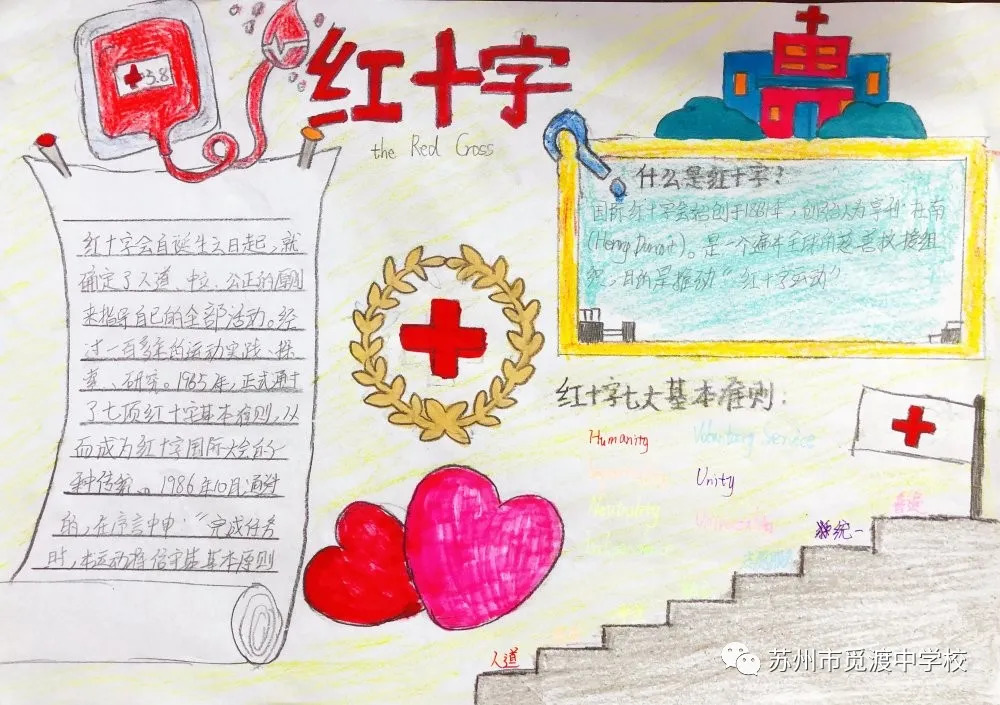 3.8
红十字
the Red Cross
红十字会自诞生之日起,就
确定了人道、中立、公正的原则
来指导自己的全部活动。经
过一百多年的运动实践、探
索、研究。1965年,正式通过
了七项红十字基本准则,从
而成为红十字国际大会的一
种传统。1986年10月通过
的,在序言中申:“完成任务
时,本运动将信守其基本原则
什么是红十字?
国际红十字会始创于1863年,创始人为亨利·杜南
(Henry Dunant)。是一个遍布全球的慈善救援组
织,目的是推动“红十字运动”
红十字七大基本准则:
Humanity
Voluntary Service
Unity
Neutrality
Universality
普遍
统一
人道
苏州市觅渡中学校